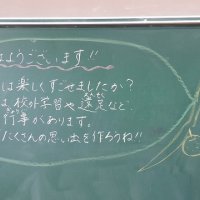 ようございます!!
は楽しくすごせましたか?
は、校外学習や遠足など、
行事があります。
たくさんの思い出を作ろうね!!